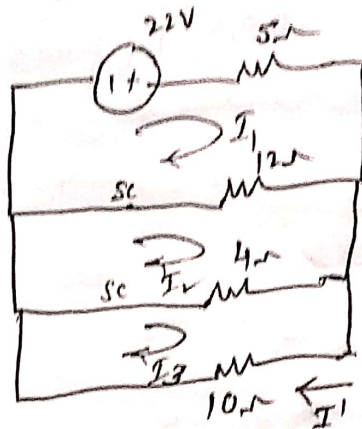 22V
5Ω
I₁
12Ω
SC
4Ω
SC
I₂
I₃
10Ω
I'